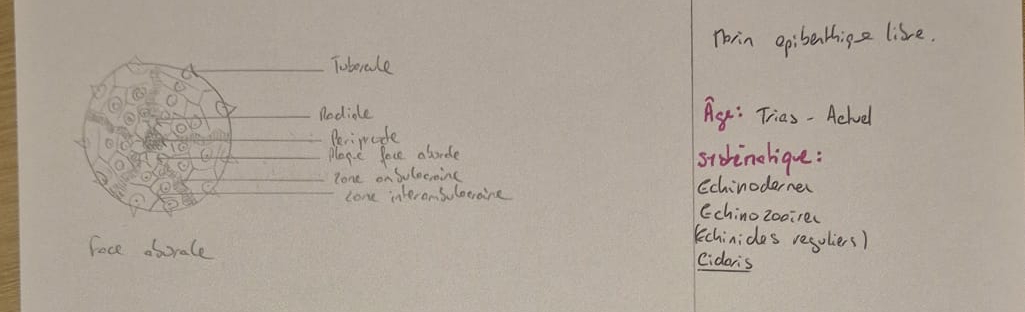 Tubercule
Radiole
Periprocte
Plaque face aborale
zone ambulacraire
zone interambulacraire
Face aborale
Marin epibenthique libre.
Âge: Trias - Actuel
Systématique:
Echinodermes
Echinozoaires
Echinides reguliers)
Cidaris